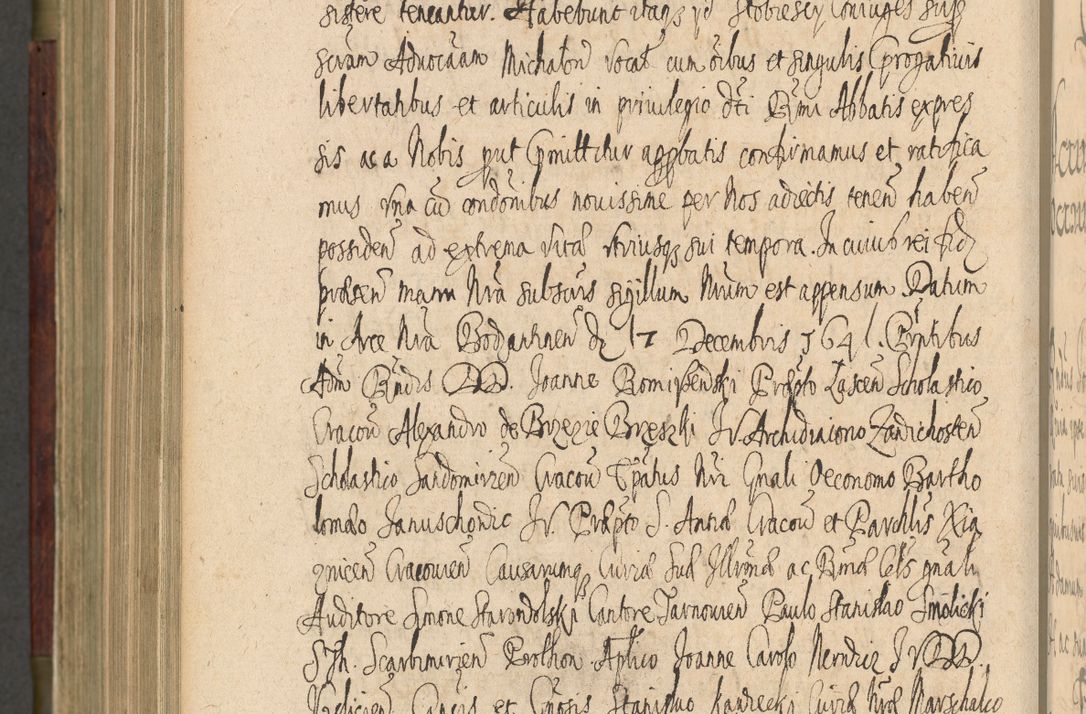 sistere teneantur. Habebunt itaqꝫ pd Stobiescy Coniuges sup
scram Aduocãam Michałow vocat cum oĩbus et singulis Cprogatiuis
libertatibus et articulis in priuilegio dti Rm̃i Abbatis expres
sis ac a Nobis put Cpmittitur appbatis confirmamus et ratifica
mus vna cũ condõnibus nouissime per Nos adiectis tenen̄ haben̄
possiden̄ ad extrema vitæ vtriusqꝫ sui tempora. In cuius rei fidẽ
præsen̄ manu Nrã subscris sigillum Nrum est appensum. Datum
in Arce Nrã Bodzantinen̄ die 17 Decembris 1641. Pr̃ntibus
Adm̄ Rñdis DD. Joanne Præpto Łascen̄ Scholastico
Cracou̅ Alexandro de Brzezie Brzeski JV Archidiacono Zawichosten̄
Scholastico Sandomirien̄ Cracou̅ Epatus Nri Gnali Oeconomo Bartho
lomæo Januschowic JV. Præpto S. Annæ Cracou̅ et Parochlis Xią
znicen̄ Cracouien̄ Causarumqꝫ Curiæ Suæ Illr̃mæ ac Rm̃æ Cels gnali
Auditore Simone Starowolski Cantore Tarnouien̄ Paulo Stanislao Smolicki
S. Th. Scarbimirien̄ Prothon Aplico Joanne Carolo JVDD.
Kielicien̄ Cancis et Stanislao Curiæ Nræ Marschalco